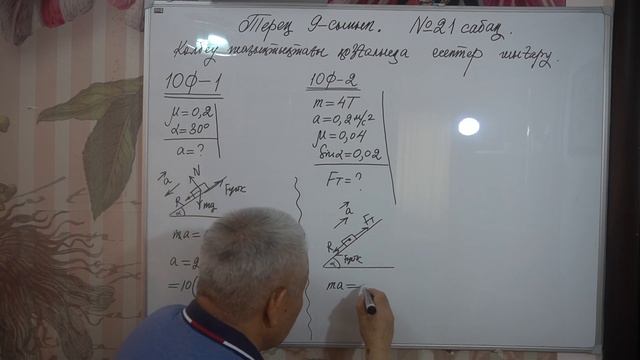 Терең 9-сынып. №21 сабақ.
Көлбеу жазықтықтағы қозғалысқа есептер шығару.
10Ф-1
μ=0,2
α=30°
a=?
a
N
Fүйк
R
mg
α
ma=
a=2
=10(
10Ф-2
m=4T
a=0,2м/с²
μ=0,04
sinα=0,02
Fт=?
a
Fт
R
Fүйк
α
ma=